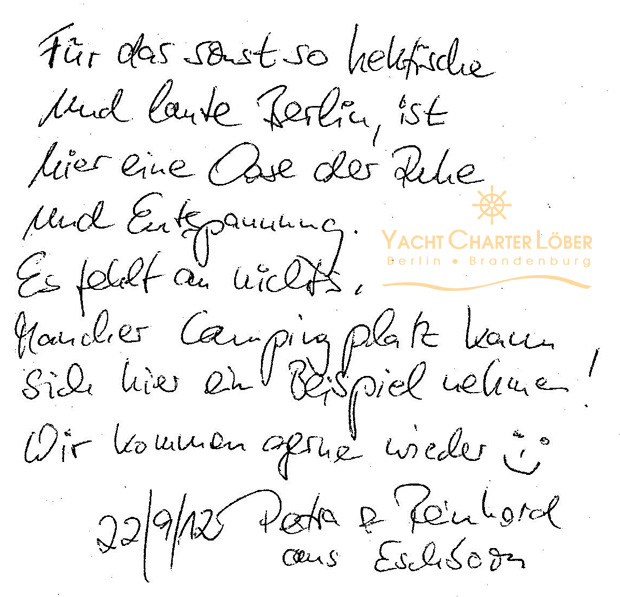 Für das sonst so hektische
und laute Berlin, ist
hier eine Oase der Ruhe
und Entspannung.
YACHT CHARTER LÖBER
Berlin • Brandenburg
Es fehlt an nichts,
Mancher Campingplatz kann
sich hier ein Beispiel nehmen!
Wir kommen gerne wieder :)
22/9/12 Petra & Reinhard
aus Eschborn